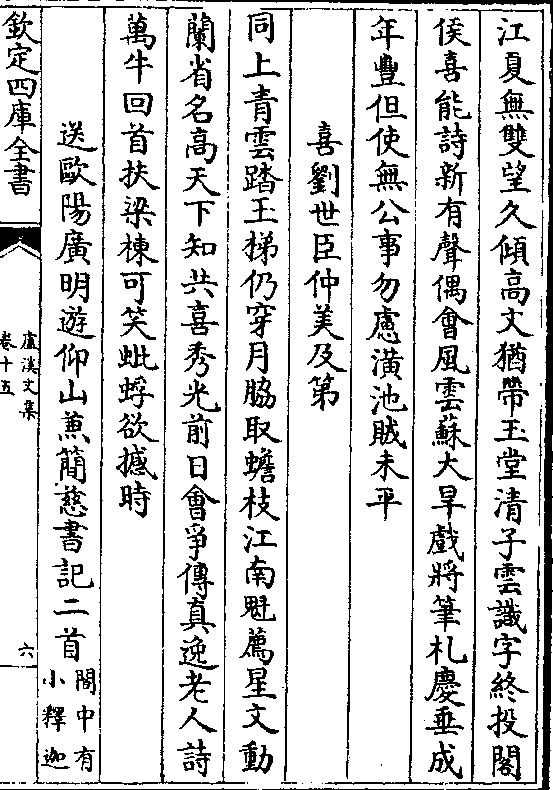 江夏無雙望久傾高文猶帶玉堂清子雲識字終投閣
侯喜能詩新有聲偶會風雲蘇大旱戲將筆札慶垂成
年豐但使無公事勿慮潢池賊未平
喜劉世臣仲美及第
同上青雲踏玉梯仍穿月脇取蟾枝江南魁薦星文動
蘭省名高天下知共喜秀光前日會爭傳真逸老人詩
萬牛回首扶梁棟可笑蚍蜉欲撼時
送歐陽廣明遊仰山蒹簡慈書記二首閣中有小釋迦
欽定四庫全書
盧溪文集
卷十五
六